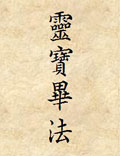 靈寶畢法